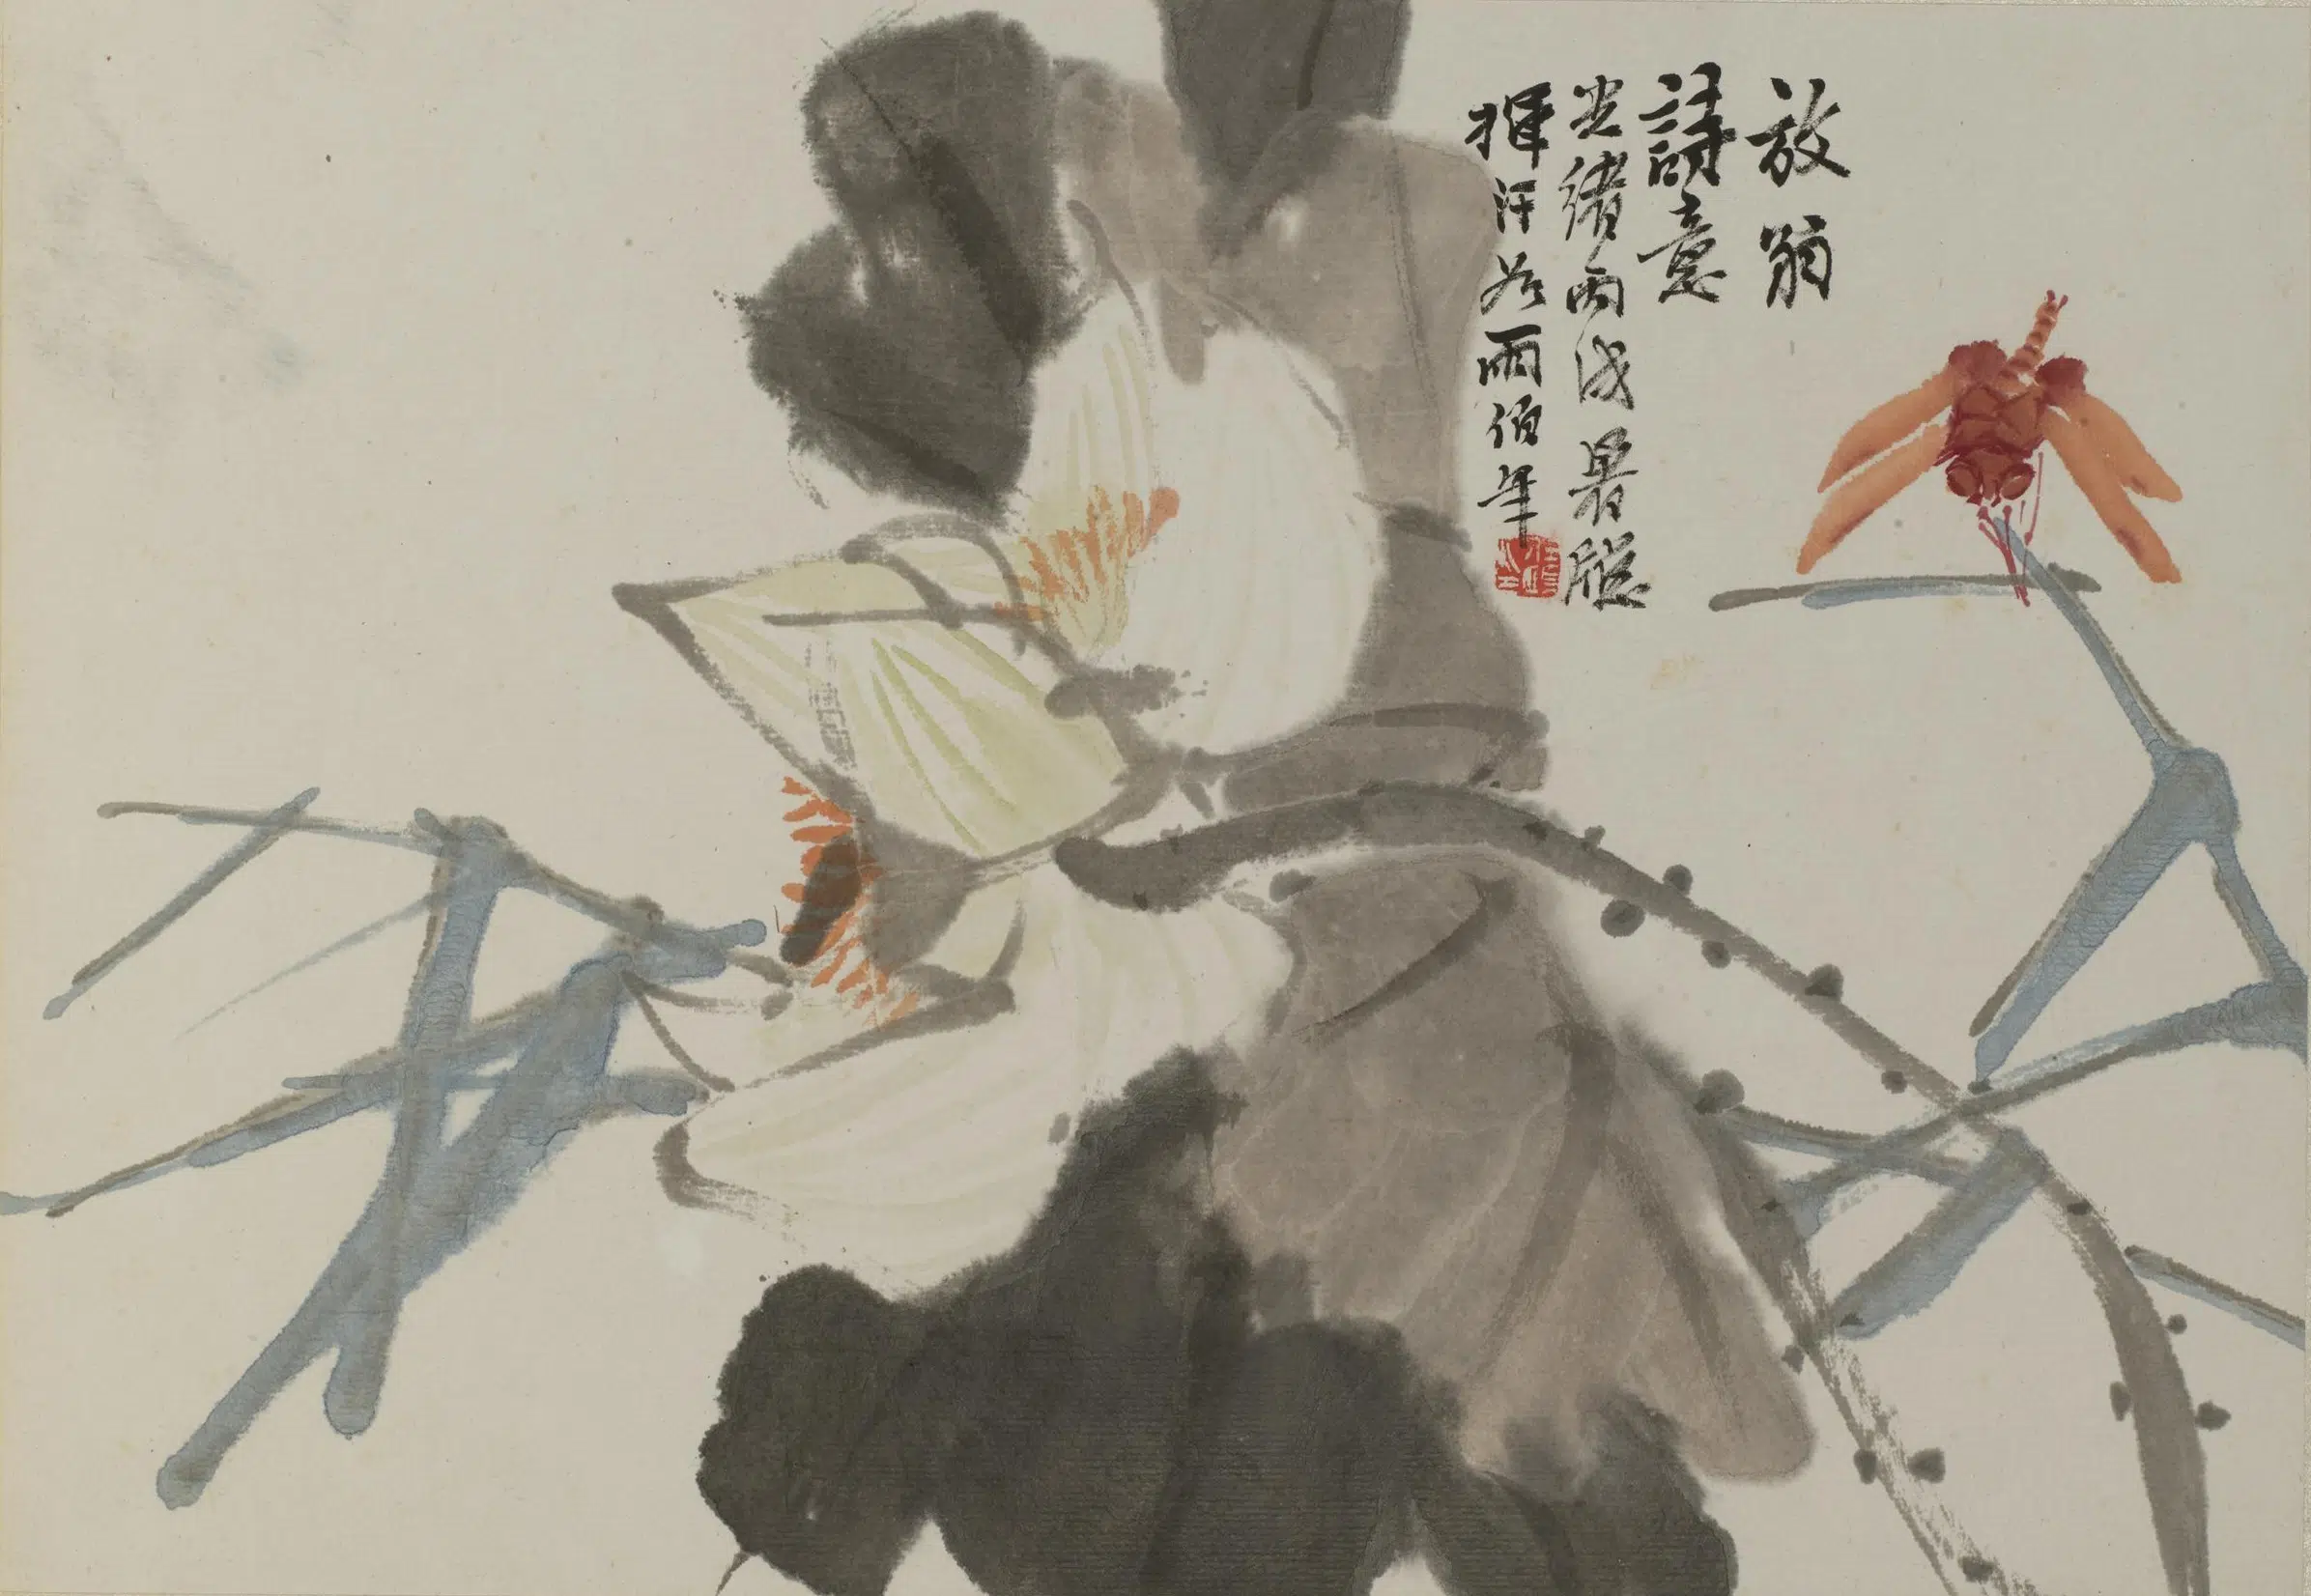 放翁
詩意
光緒丙戌暑窓
揮汗如雨伯年